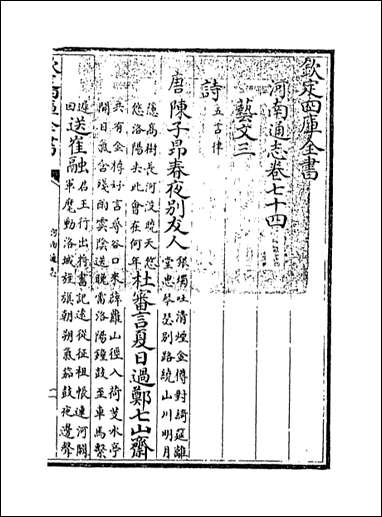 欽定四庫全書
河南通志卷七十四
藝文三
詩五言律
唐陳子昂春夜别友人銀燭吐清煙金樽對綺筵離
堂思琴瑟别路繞山川明月
隱高樹長河没曉天悠
悠洛陽去此會在何年杜審言夏日過鄭七山齋
共有樽中好言尋谷口來薜蘿山徑入荷芰水亭
開日氣含殘雨雲陰送晚雷洛陽鐘鼓至車馬繫
遲
回送崔融君王行出將書記逺從征祖帳連河闕
軍麾動洛城旌旗朝朔氣笳鼓夜邊聲
河南通志